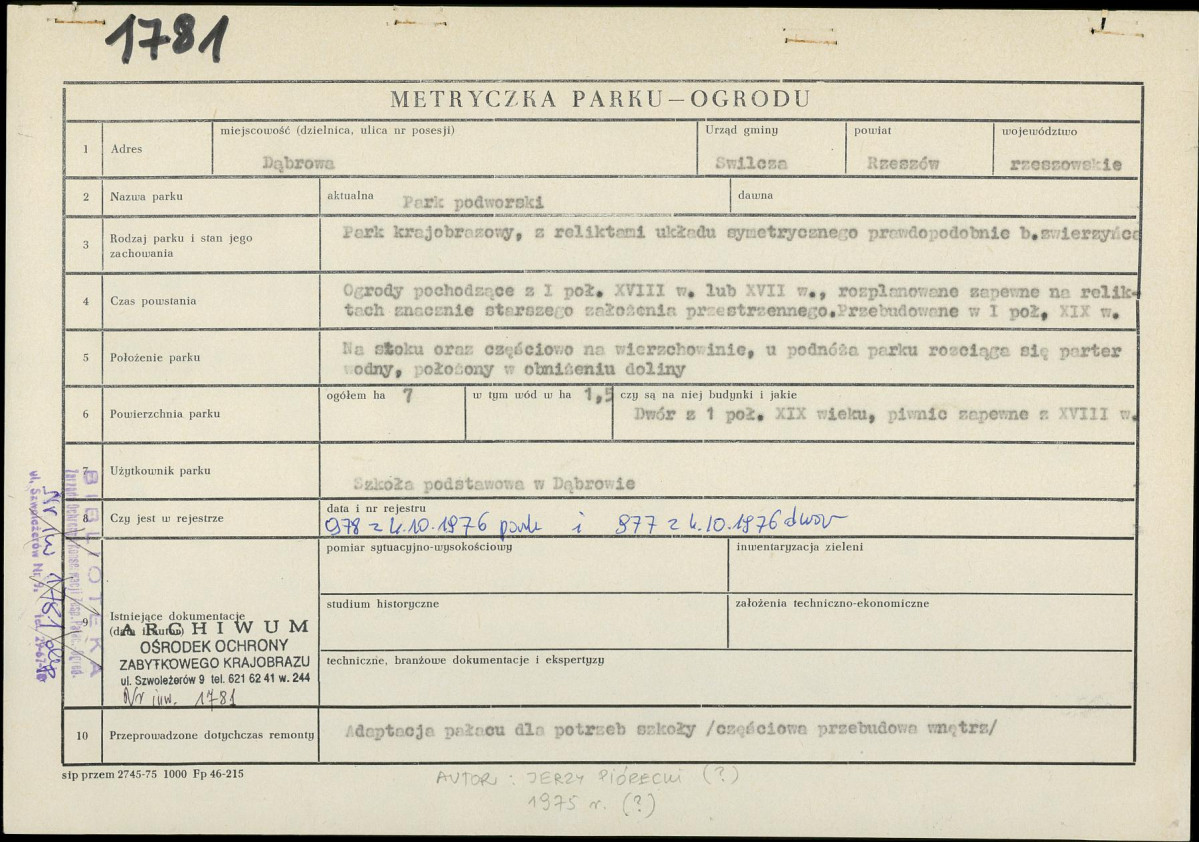 1781
METRYCZKA PARKU—OGRODU
1 Adres miejscowość (dzielnica, ulica nr posesji) Urząd gminy powiat województwo
Dąbrowa Swilcza Rzeszów rzeszowskie
2 Nazwa parku aktualna Park podworski dawna
3 Rodzaj parku i stan jego zachowania
Park krajobrazowy, z reliktami układu symetrycznego prawdopodobnie b.zwierzyńca
4 Czas powstania
Ogrody pochodzące z I poł. XVIII w. lub XVII w., rozplanowane zapewne na relik-
tach znacznie starszego założenia przestrzennego.Przebudowane w I poł, XIX w.
5 Położenie parku
Na stoku oraz częściowo na wierzchowinie, u podnóża parku rozciąga się parter
wodny, położony w obniżeniu doliny
6 Powierzchnia parku
ogółem ha 7 w tym wód w ha 1,5 czy są na niej budynki i jakie
Dwór z 1 poł. XIX wieku, piwnic zapewne z XVIII w.
7 Użytkownik parku
Szkoła podstawowa w Dąbrowie
8 Czy jest w rejestrze data i nr rejestru
978 z 4.10.1976 park i 977 z 4.10.1976 dwór
9 Istniejące dokumentacje
pomiar sytuacyjno-wysokościowy inwentaryzacja zieleni
studium historyczne założenia techniczno-ekonomiczne
techniczne, branżowe dokumentacje i ekspertyzy
ARCHIWUM
OŚRODEK OCHRONY
ZABYTKOWEGO KRAJOBRAZU
ul. Szwoleżerów 9 tel. 621 62 41 w. 244
Nr inw. 1781
10 Przeprowadzone dotychczas remonty
Adaptacja pałacu dla potrzeb szkoły /częściowa przebudowa wnętrz/
sip przem 2745-75 1000 Fp 46-215
AUTOR : JERZY PIÓRECKI (?)
1975 r. (?)
BIBLIOTEKA
ul. Szwoleżerów Nr 9,
Nr inw 1781